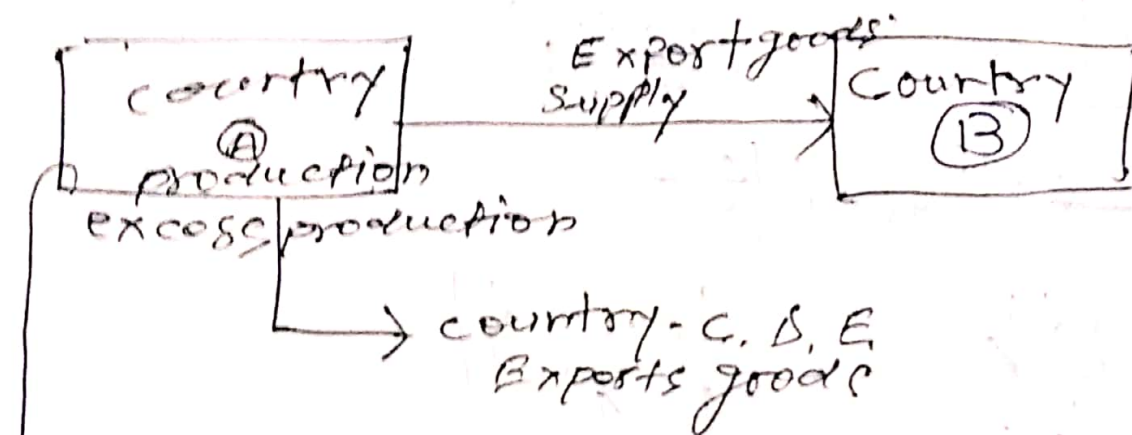 country
Ⓐ
production
excess production
Export goods
Supply
Country
Ⓑ
country - C, D, E
Exports goods